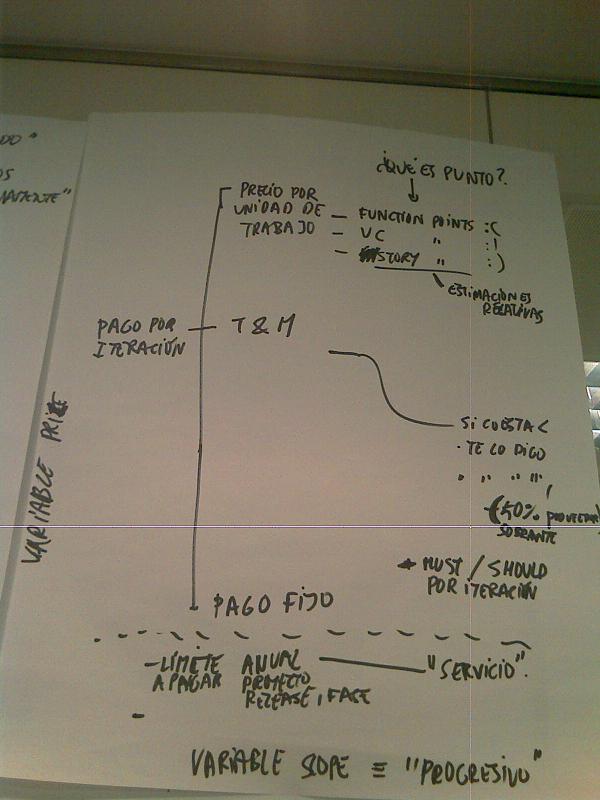 DO"
OS
¿QUÉ ES PUNTO?
PRECIO POR
UNIDAD DE
TRABAJO
- FUNCTION POINTS :(
- UC " :|
- STORY " :)
ESTIMACIONES
RELATIVAS
PAGO POR
ITERACIÓN
T & M
VARIABLE
SI CUESTA <
· TE LO DIGO
· " " " "
(50%
SOBRANTE
MUST / SHOULD
POR ITERACIÓN
PAGO FIJO
- LÍMITE ANUAL
A PAGAR PROYECTO
RELEASE, FASE
"SERVICIO".
-
VARIABLE SOPE ≡ "PROGRESIVO"